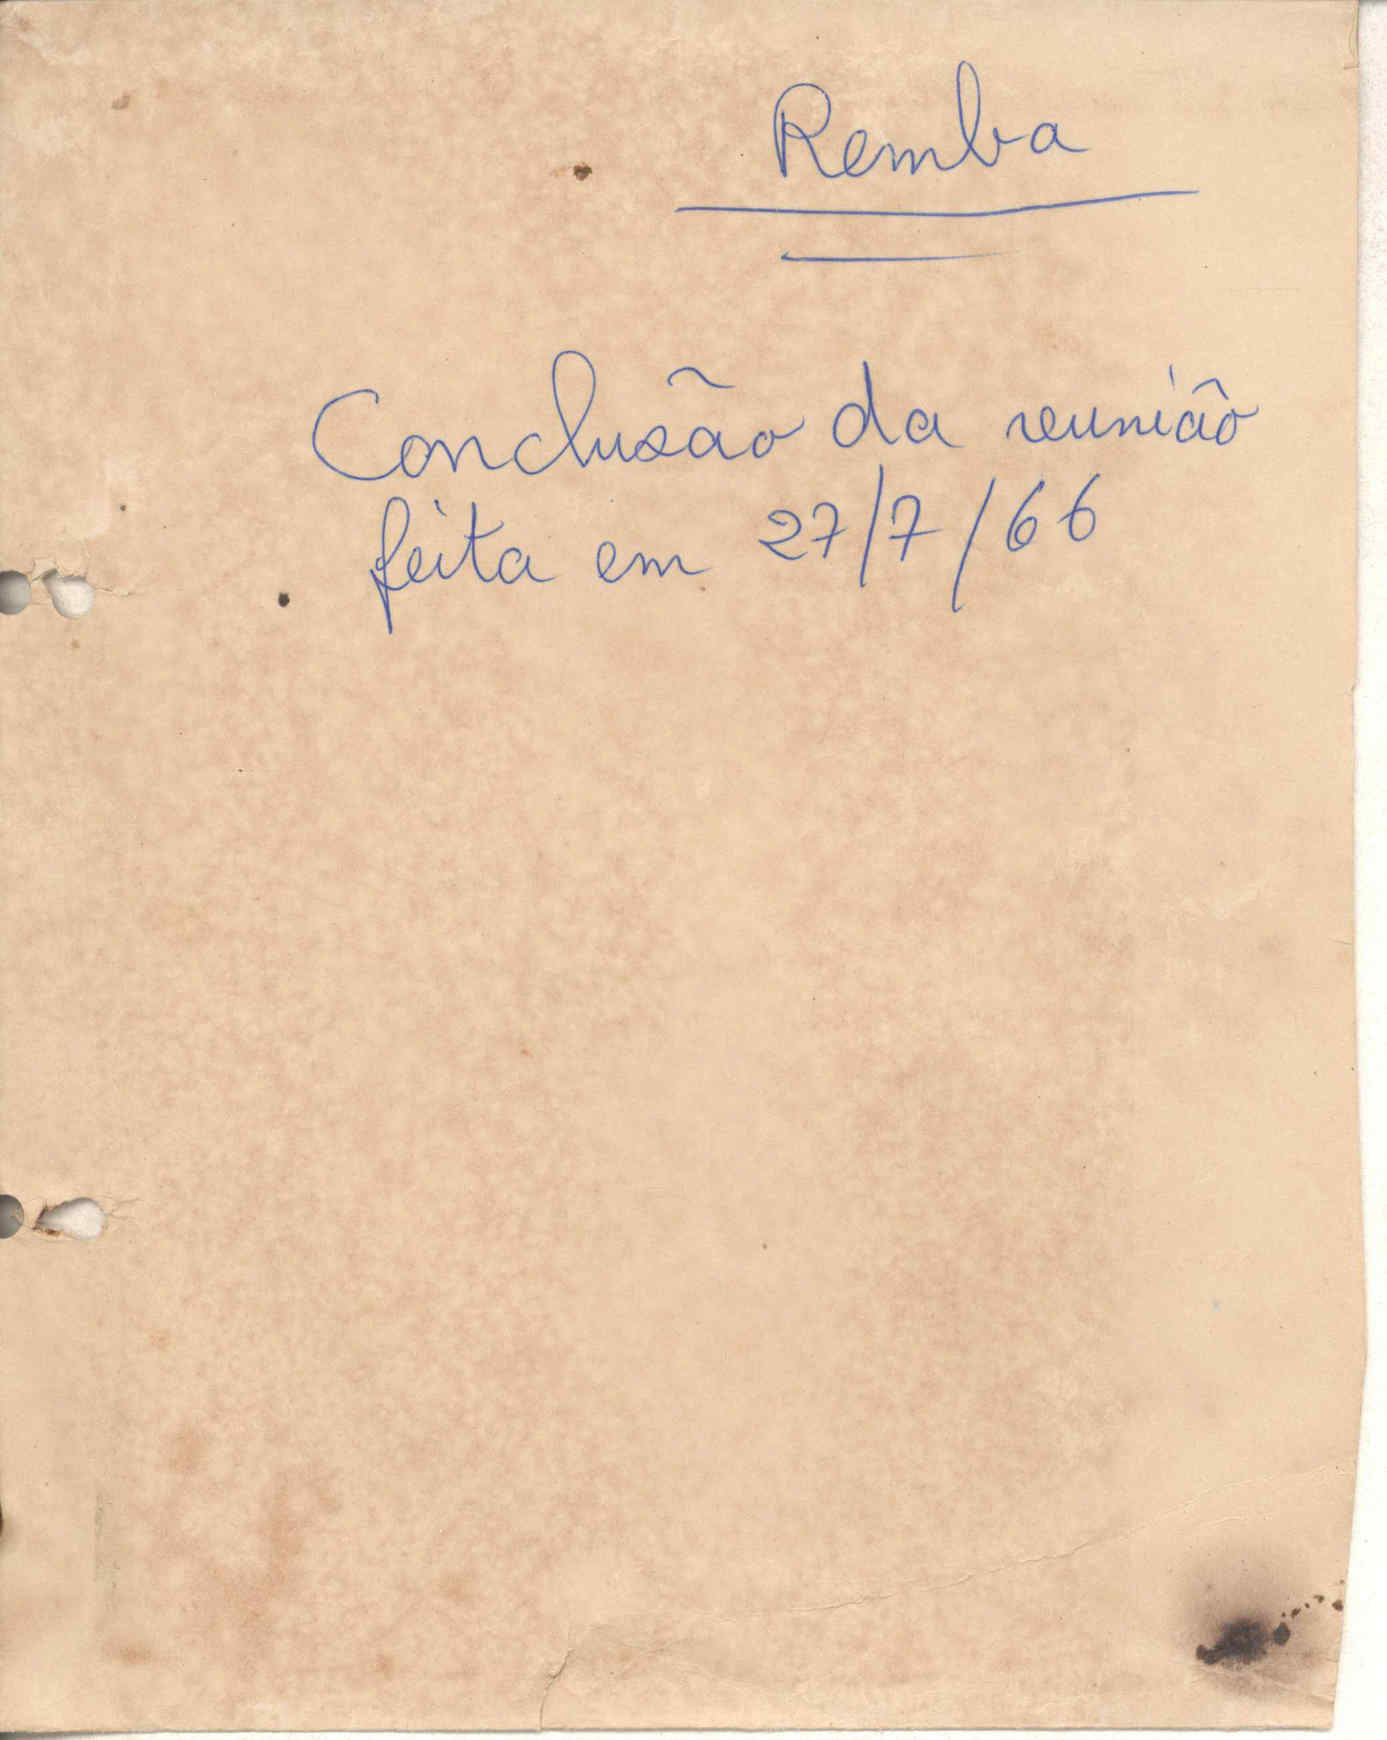 Remba
Conclusão da reunião
feita em 27/7/66